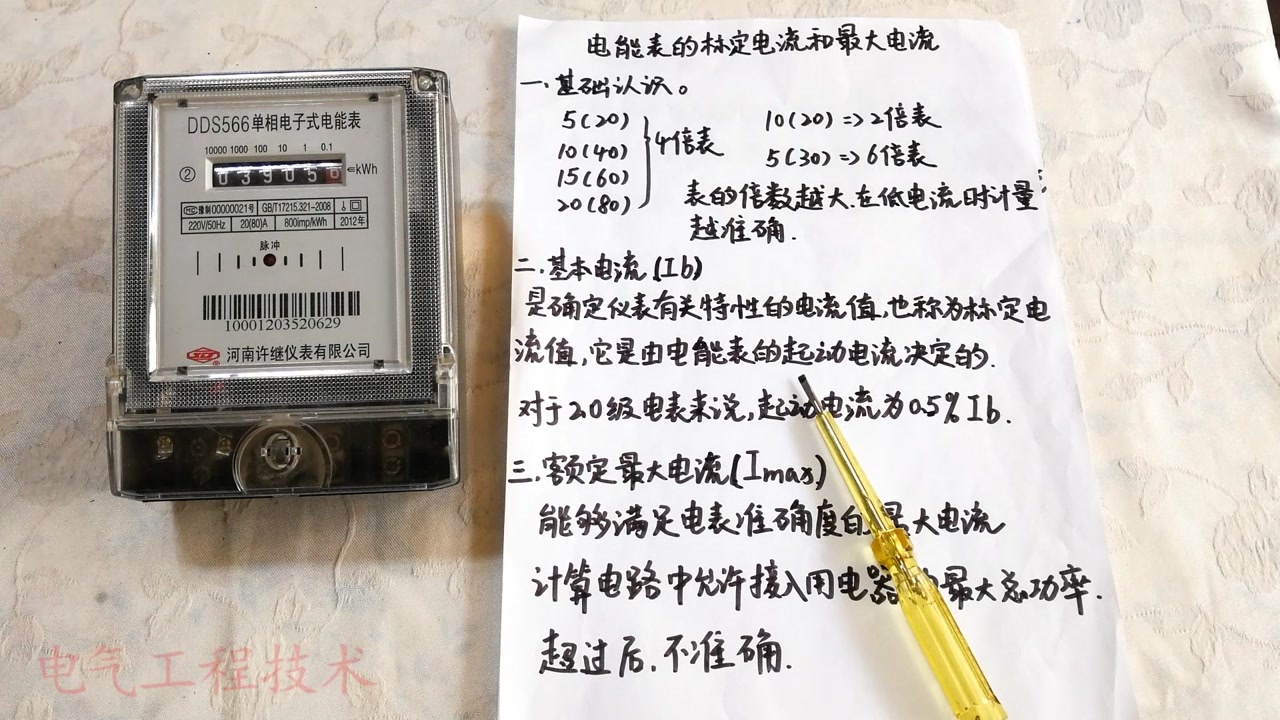 DDS566单相电子式电能表
10000 1000 100 10 1 0.1
② 039056 kWh
MC 豫制00000021号 GB/T17215.321-2008
220V/50Hz 20(80)A 800imp/kWh 2012年
脉冲
10001203520629
河南许继仪表有限公司
电能表的标定电流和最大电流
一.基础认识。
5(20)
10(40)
15(60)
20(80)
4倍表
10(20)=>2倍表
5(30)=>6倍表
表的倍数越大.在低电流时计量
越准确.
二.基本电流(Ib)
是确定仪表有关特性的电流值,也称为标定电
流值,它是由电能表的起动电流决定的.
对于2.0级电表来说,起动电流为0.5%Ib.
三.额定最大电流(Imax)
能够满足电表准确度的最大电流
计算电路中允许接入用电器的最大总功率.
超过后.不准确.
电气工程技术